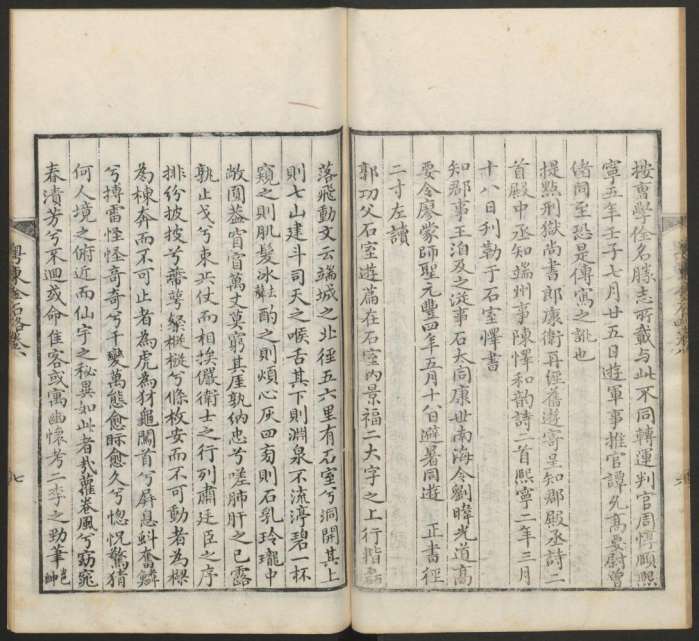 按曹學佺名勝志所載与此不同轉運判官周惇頤熙
寧五年壬子七月廿五日遊軍事推官譚允高要尉曾
緒同至恐是傳寫之訛也
提點刑獄尚書郎康衛再經舊遊寄呈知郡殿丞詩二
首殿中丞知端州事陳懌和韵詩二首熙寧二年三月
十八日刋勒于石室懌書
知郡事王泊及之從事石大同康世南海令劉暐光道高
要令廖蒙師聖元豐四年五月十八日避暑同遊 正書徑
二寸左讀
郭功父石室遊篇在石室內景福二大字之上行揩
落飛動文云端城之北徑五六里有石室兮洞開其上
則七山建斗司天之喉舌其下則淵泉不流渟碧一杯
窺之則肌髮冰 酌之則煩心灰四 則石乳玲瓏中
敞圓葢穹窅萬丈莫窮其厓孰納忠兮嗟肺肝之已露
孰止戈兮束兵仗而相挨儼衛士之行列肅廷臣之序
排紛披披兮蕚 槎兮條枚妥而不可動者為樑
為棟奔而不可止者為虎為犲龜闖首兮屏息蚪奮鱗
兮搏雷怪怪奇奇兮千變萬態愈眎愈久兮惚怳驚猜
何人境之俯近而仙宇之秘異如此者哉蘿卷風兮窈窕
春漬芳兮不迴或命佳客或寓幽懷考二李之勁筆邕
紳
粤東金石略卷
九